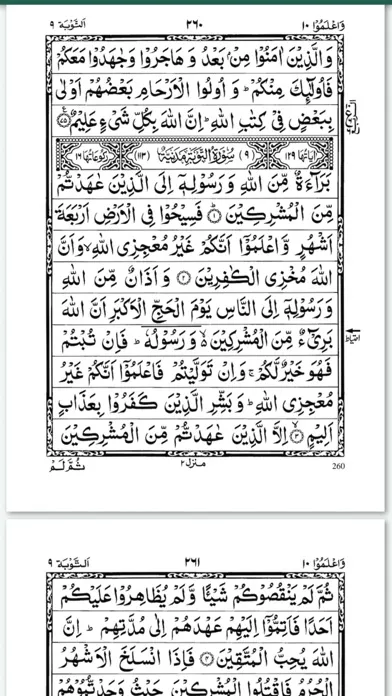 وَاعْلَمُوْٓا ١٠ ٢٦٠ اَلتَّوْبَة ٩
وَالَّذِيْنَ اٰمَنُوْا مِنْۢ بَعْدُ وَهَاجَرُوْا وَجٰهَدُوْا مَعَكُمْ
فَاُولٰٓئِكَ مِنْكُمْ ؕ وَاُولُوا الْاَرْحَامِ بَعْضُهُمْ اَوْلٰى
بِبَعْضٍ فِىْ كِتٰبِ اللّٰهِ ؕ اِنَّ اللّٰهَ بِكُلِّ شَىْءٍ عَلِيْمٌ ﴿٧٥﴾
اٰيَاتُهَا ١٢٩ (٩) سُوْرَةُ التَّوْبَةِ مَدَنِيَّةٌ (١١٣) رُكُوْعَاتُهَا ١٦
بَرَآءَةٌ مِّنَ اللّٰهِ وَرَسُوْلِهٖٓ اِلَى الَّذِيْنَ عٰهَدْتُّمْ
مِّنَ الْمُشْرِكِيْنَ ﴿١﴾ فَسِيْحُوْا فِى الْاَرْضِ اَرْبَعَةَ
اَشْهُرٍ وَّاعْلَمُوْٓا اَنَّكُمْ غَيْرُ مُعْجِزِى اللّٰهِ ۙ وَاَنَّ
اللّٰهَ مُخْزِى الْكٰفِرِيْنَ ﴿٢﴾ وَاَذَانٌ مِّنَ اللّٰهِ
وَرَسُوْلِهٖٓ اِلَى النَّاسِ يَوْمَ الْحَجِّ الْاَكْبَرِ اَنَّ اللّٰهَ
بَرِىْٓءٌ مِّنَ الْمُشْرِكِيْنَ ۙ وَرَسُوْلُهٗ ؕ فَاِنْ تُبْتُمْ
فَهُوَ خَيْرٌ لَّكُمْ ۚ وَاِنْ تَوَلَّيْتُمْ فَاعْلَمُوْٓا اَنَّكُمْ غَيْرُ
مُعْجِزِى اللّٰهِ ؕ وَبَشِّرِ الَّذِيْنَ كَفَرُوْا بِعَذَابٍ
اَلِيْمٍ ﴿٣﴾ اِلَّا الَّذِيْنَ عٰهَدْتُّمْ مِّنَ الْمُشْرِكِيْنَ
260 منزل ٢ ثُمَّ لَمْ
وَاعْلَمُوْٓا ١٠ ٢٦١ اَلتَّوْبَة ٩
ثُمَّ لَمْ يَنْقُصُوْكُمْ شَيْـًٔا وَّلَمْ يُظَاهِرُوْا عَلَيْكُمْ
اَحَدًا فَاَتِمُّوْٓا اِلَيْهِمْ عَهْدَهُمْ اِلٰى مُدَّتِهِمْ ؕ اِنَّ
اللّٰهَ يُحِبُّ الْمُتَّقِيْنَ ﴿٤﴾ فَاِذَا انْسَلَخَ الْاَشْهُرُ
الْحُرُمُ فَاقْتُلُوا الْمُشْرِكِيْنَ حَيْثُ وَجَدْتُّمُوْهُمْ